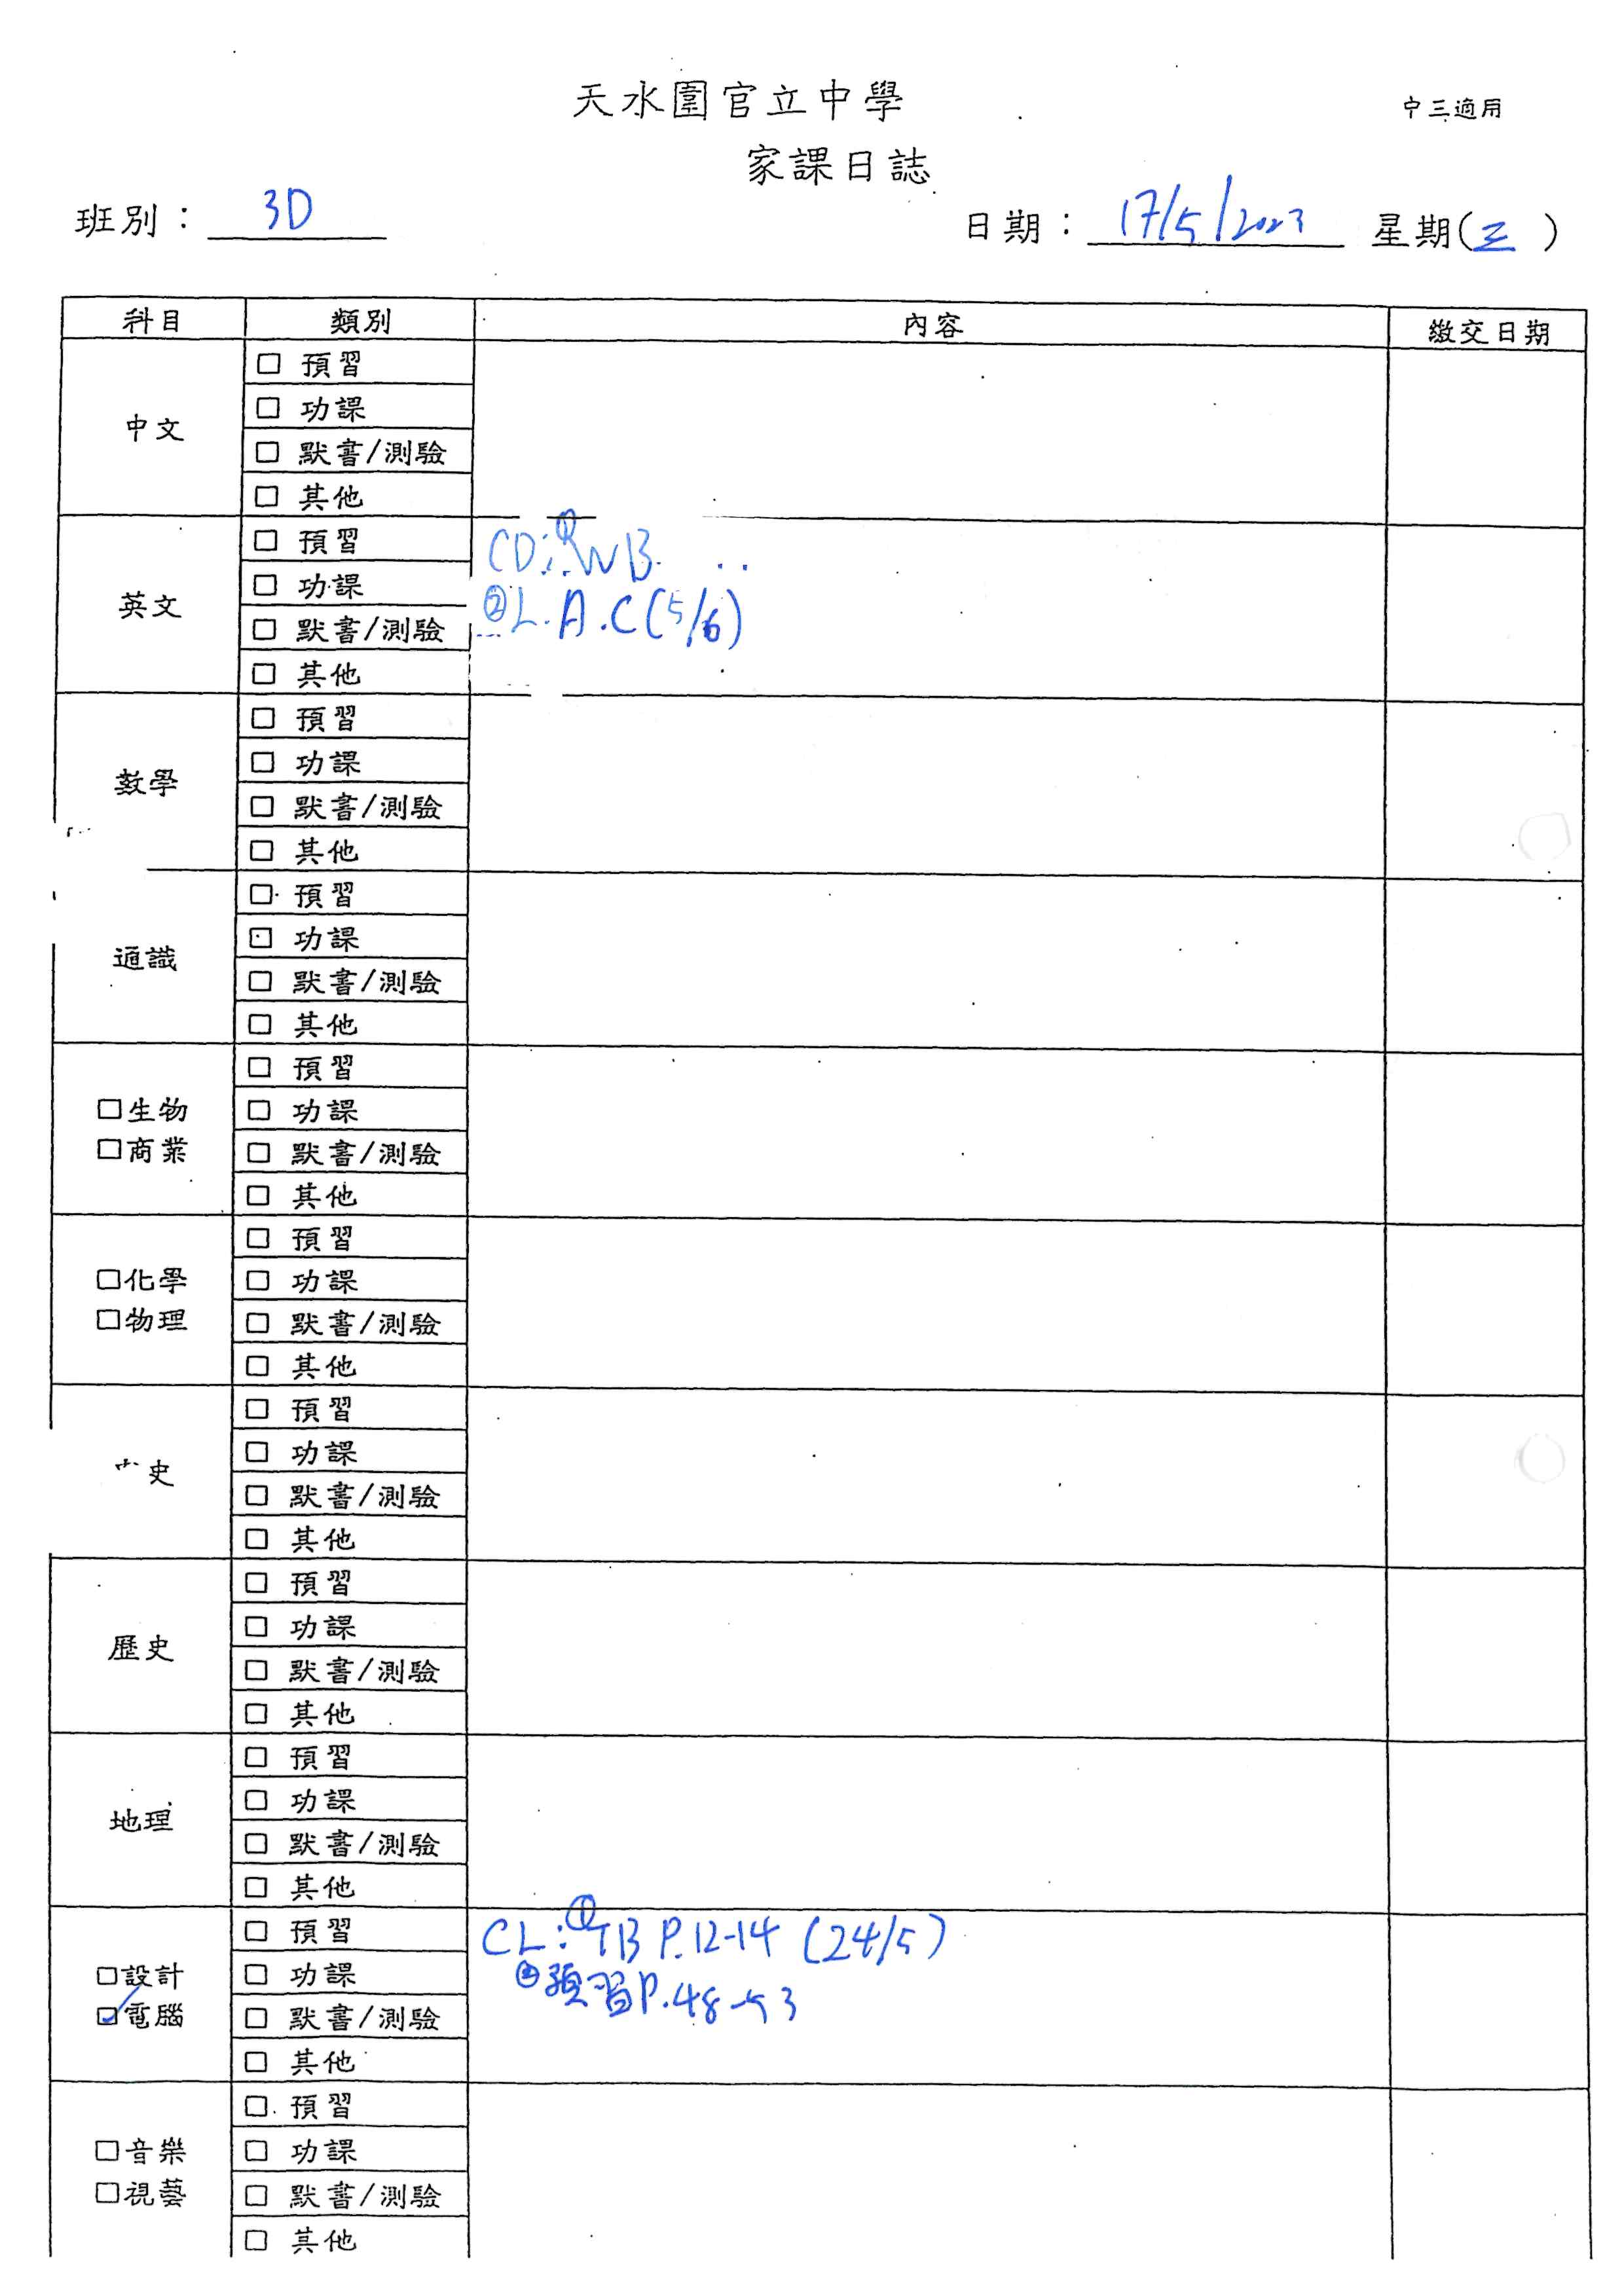 天水圍官立中學
中三適用
家課日誌
班別： 3D
日期： 17/5/2023 星期(三)
科目 類別 內容 繳交日期
中文
□ 預習
□ 功課
□ 默書/測驗
□ 其他
英文
□ 預習
□ 功課
□ 默書/測驗
□ 其他
CD: ①WB
②L.A.C(5/6)
數學
□ 預習
□ 功課
□ 默書/測驗
□ 其他
通識
□ 預習
□ 功課
□ 默書/測驗
□ 其他
□生物
□商業
□ 預習
□ 功課
□ 默書/測驗
□ 其他
□化學
□物理
□ 預習
□ 功課
□ 默書/測驗
□ 其他
史
□ 預習
□ 功課
□ 默書/測驗
□ 其他
歷史
□ 預習
□ 功課
□ 默書/測驗
□ 其他
地理
□ 預習
□ 功課
□ 默書/測驗
□ 其他
□設計
☑電腦
□ 預習
□ 功課
□ 默書/測驗
□ 其他
CL: ①TB P.12-14 (24/5)
②預習P.48-53
□音樂
□視藝
□ 預習
□ 功課
□ 默書/測驗
□ 其他